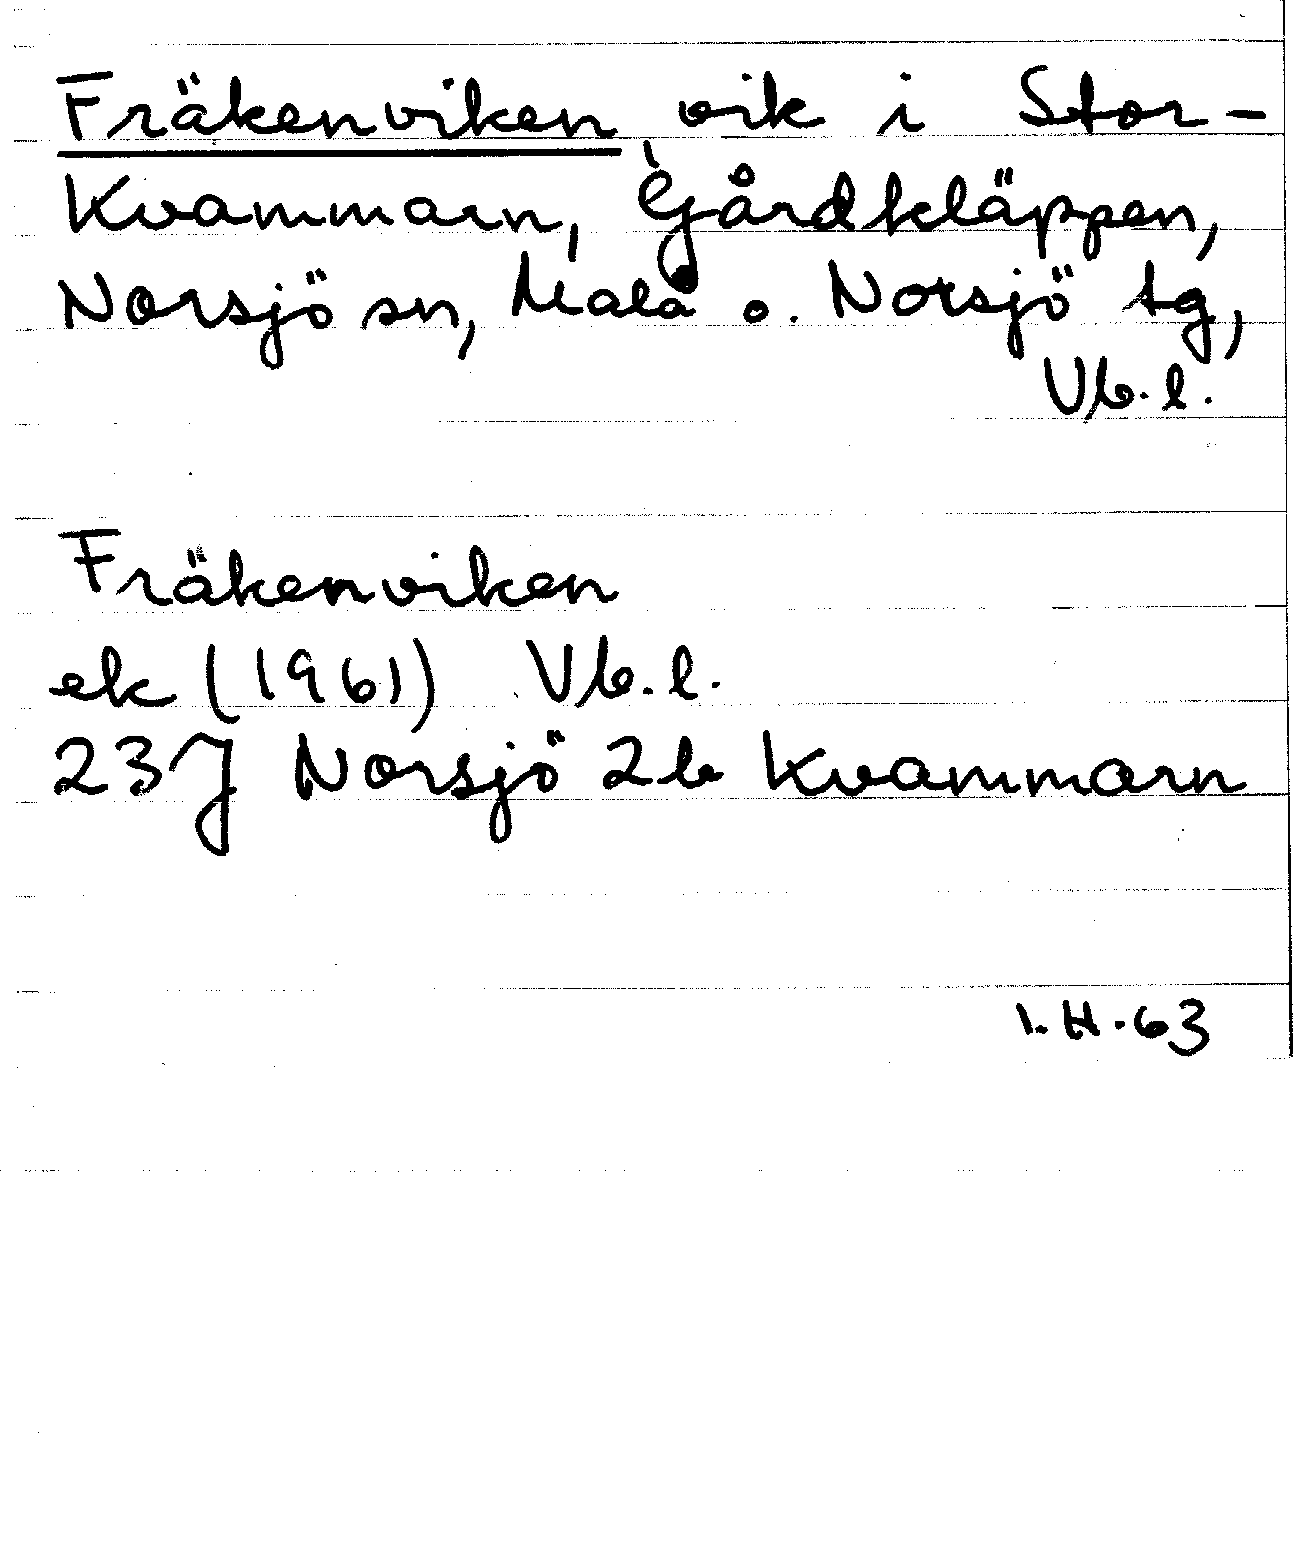 Fräkenviken vik i Stor-
Kvammarn, Gårdkläppen,
Norsjö sn, Malå o. Norsjö tg,
Vb. l.
Fräkenviken
ek (1961) Vb. l.
23J Norsjö 2b Kvammarn
I. H. 63